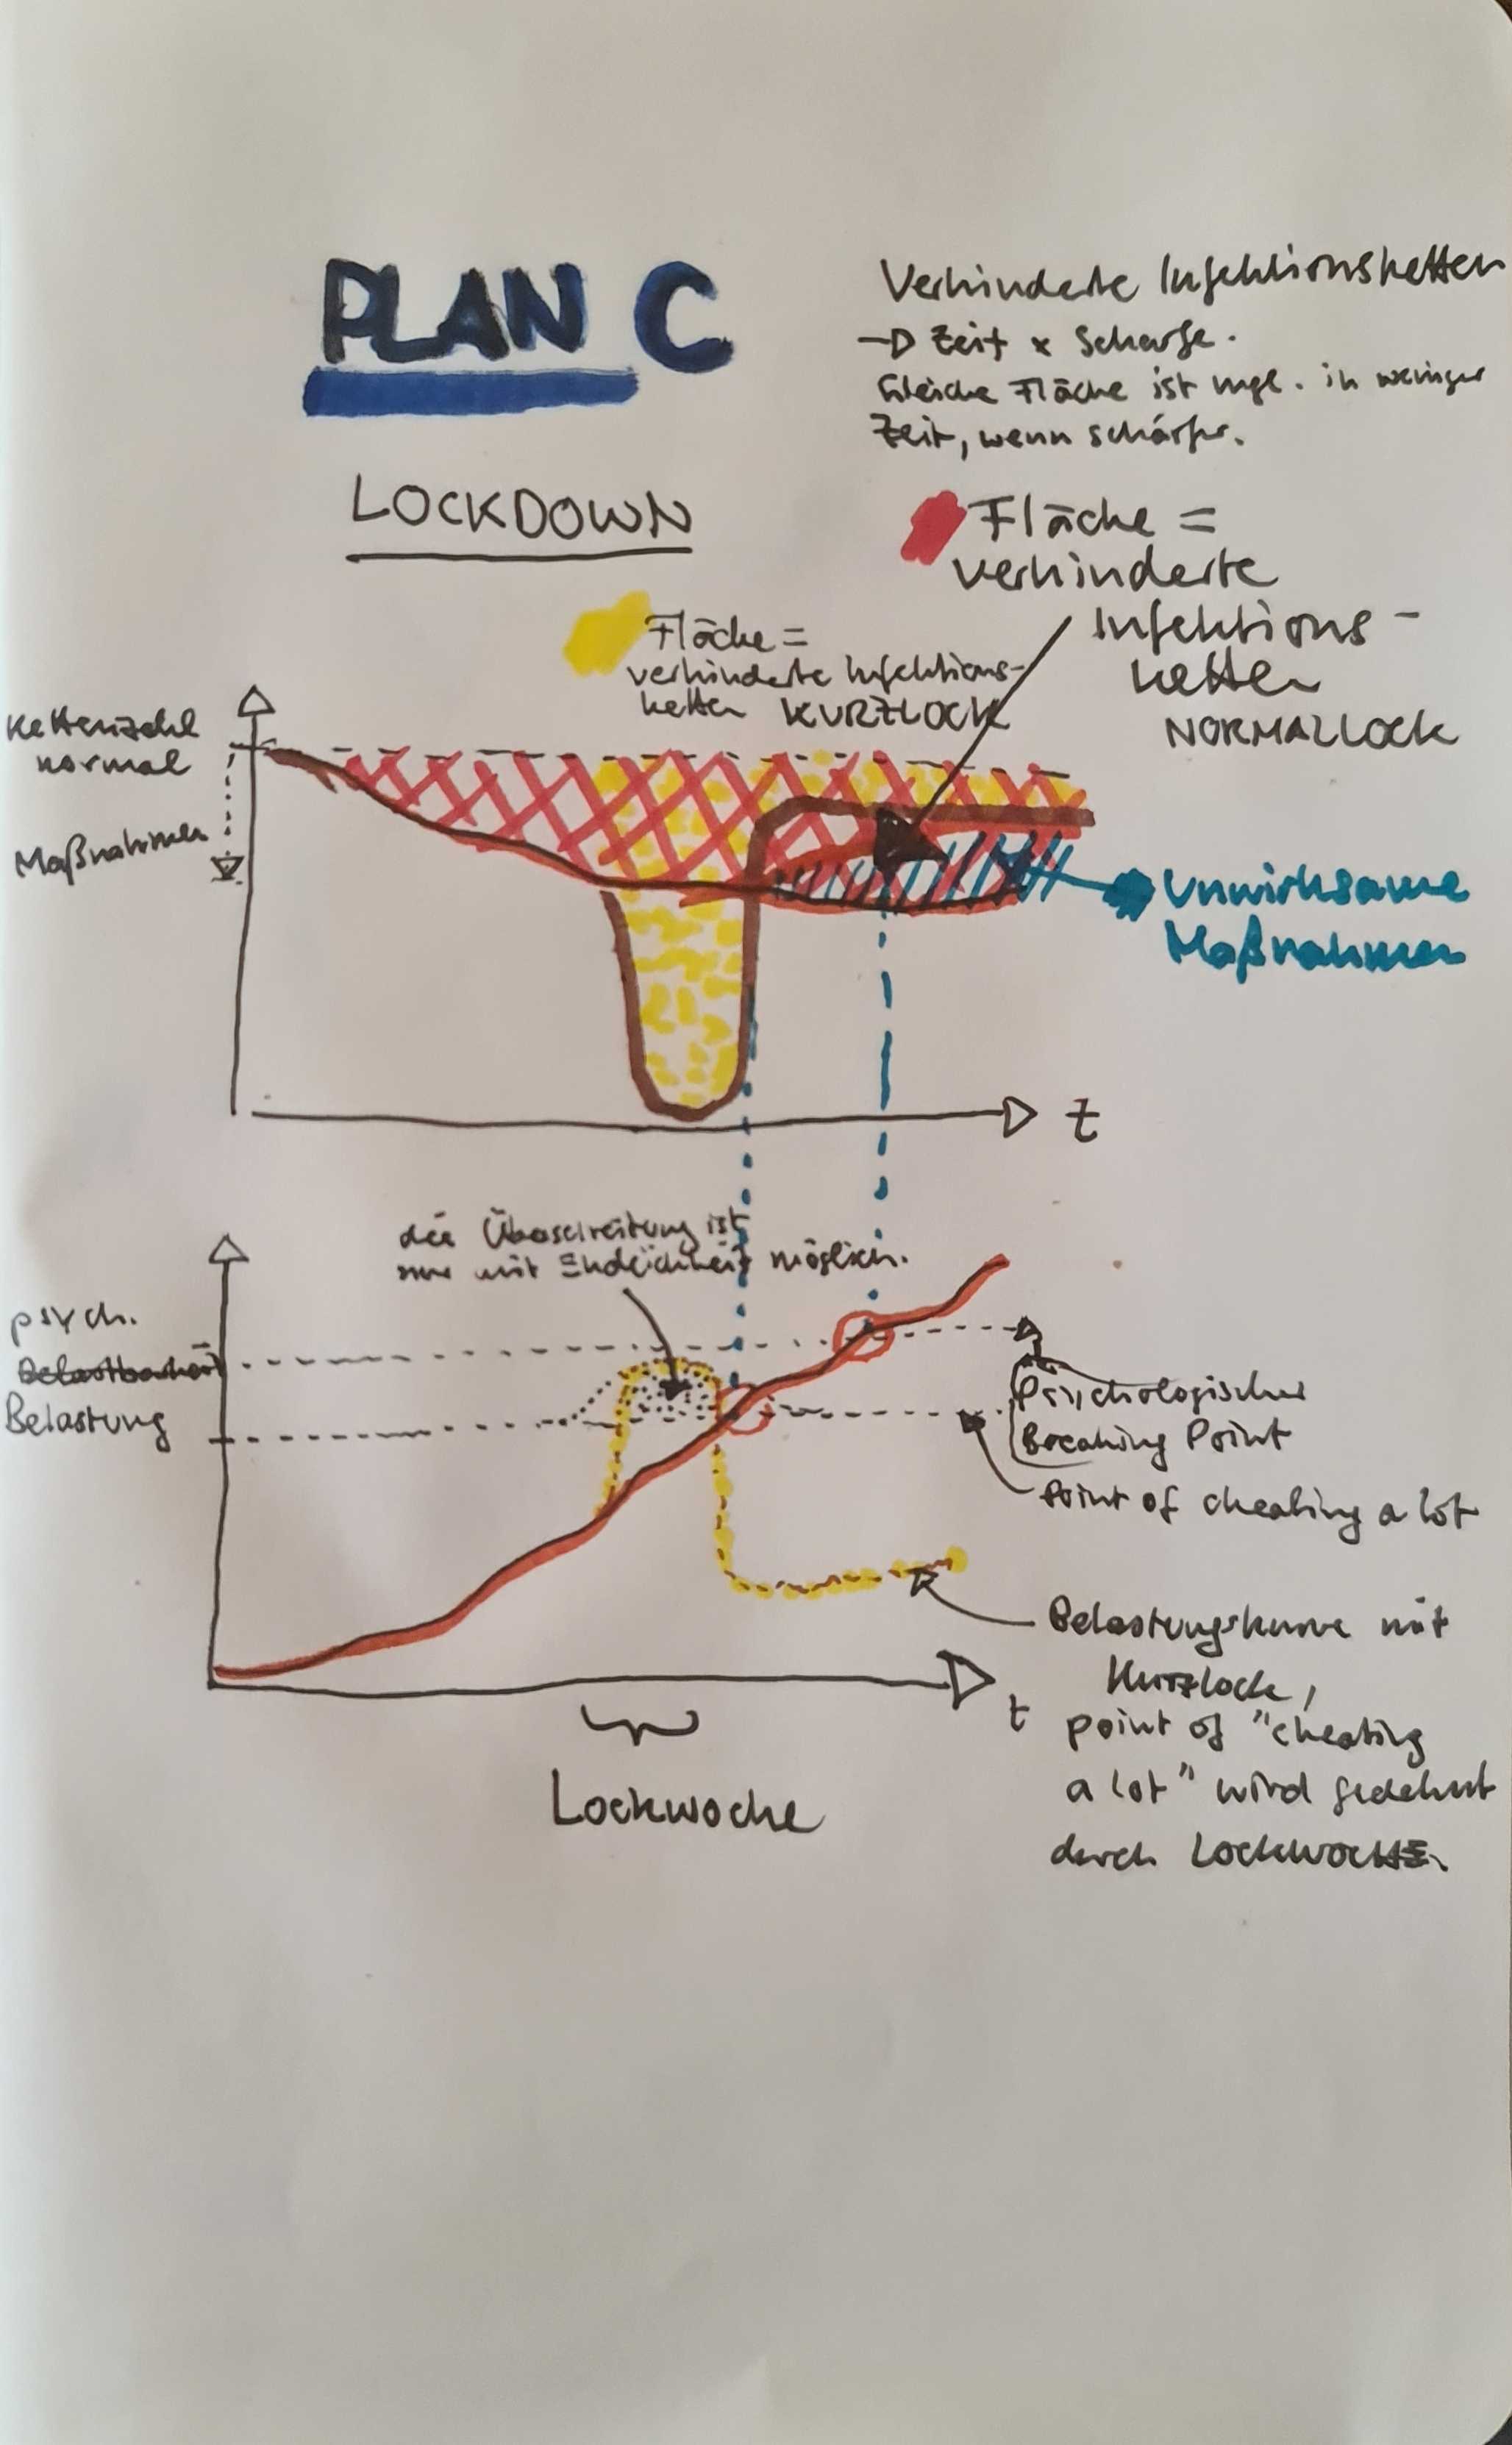 PLAN C
Verhinderte Infektionsketten
→ Zeit x Schärfe.
Gleiche Fläche ist mgl. in weniger
Zeit, wenn schärfer.
LOCKDOWN
Fläche =
verhinderte
Infektions-
ketten
NORMALLOCK
Fläche =
verhinderte Infektions-
ketten KURZLOCK
Kettenzahl
normal
Maßnahmen
Unwirksame
Maßnahmen
t
die Überschreitung ist
nur mit Endlichkeit möglich.
psych.
Belastbarkeit
Belastung
Psychologischer
Breaking Point
Point of cheating a lot
Belastungskurve mit
Kurzlock,
point of "cheating
a lot" wird gedehnt
durch LOCKWOCHE.
t
Lockwoche